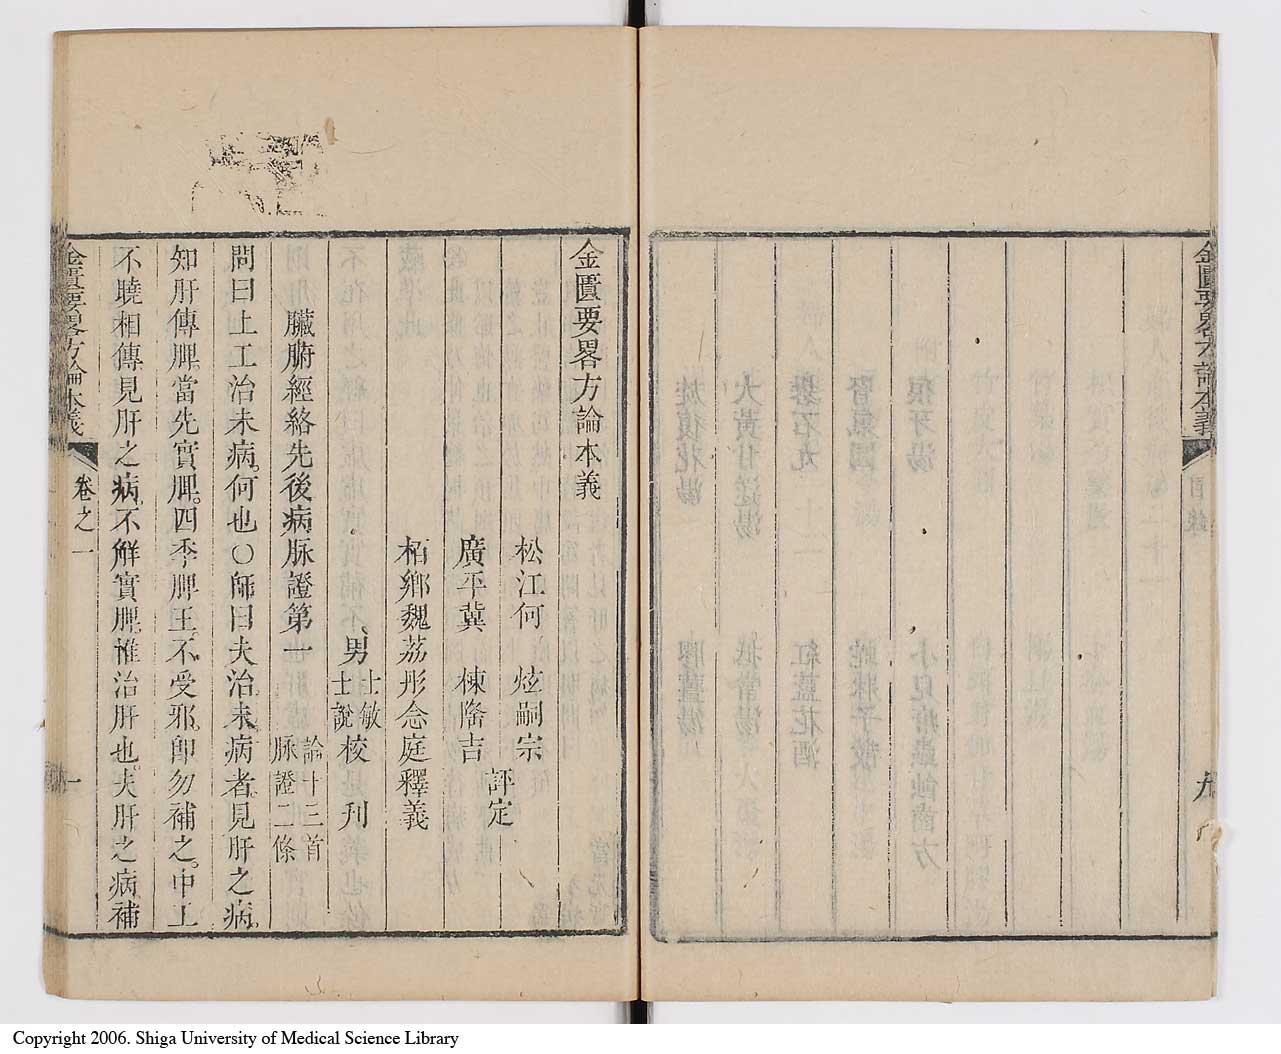 金匱要畧方論本義
目錄
九
金匱要畧方論本義
松江何　炫嗣宗
評定
廣平冀　棟隆吉
栢鄉魏荔彤念庭釋義
男士敏士說校刋
臟腑經絡先後病脉證第一 論十三首脉證二條
問曰上工治未病。何也○師曰夫治未病者。見肝之病。
知肝傳脾。當先實脾。四季脾王不受邪。卽勿補之。中工
不曉相傳見肝之病。不解實脾。惟治肝也。夫肝之病補
金匱要畧方論本義
卷之一
一
Copyright 2006. Shiga University of Medical Science Library